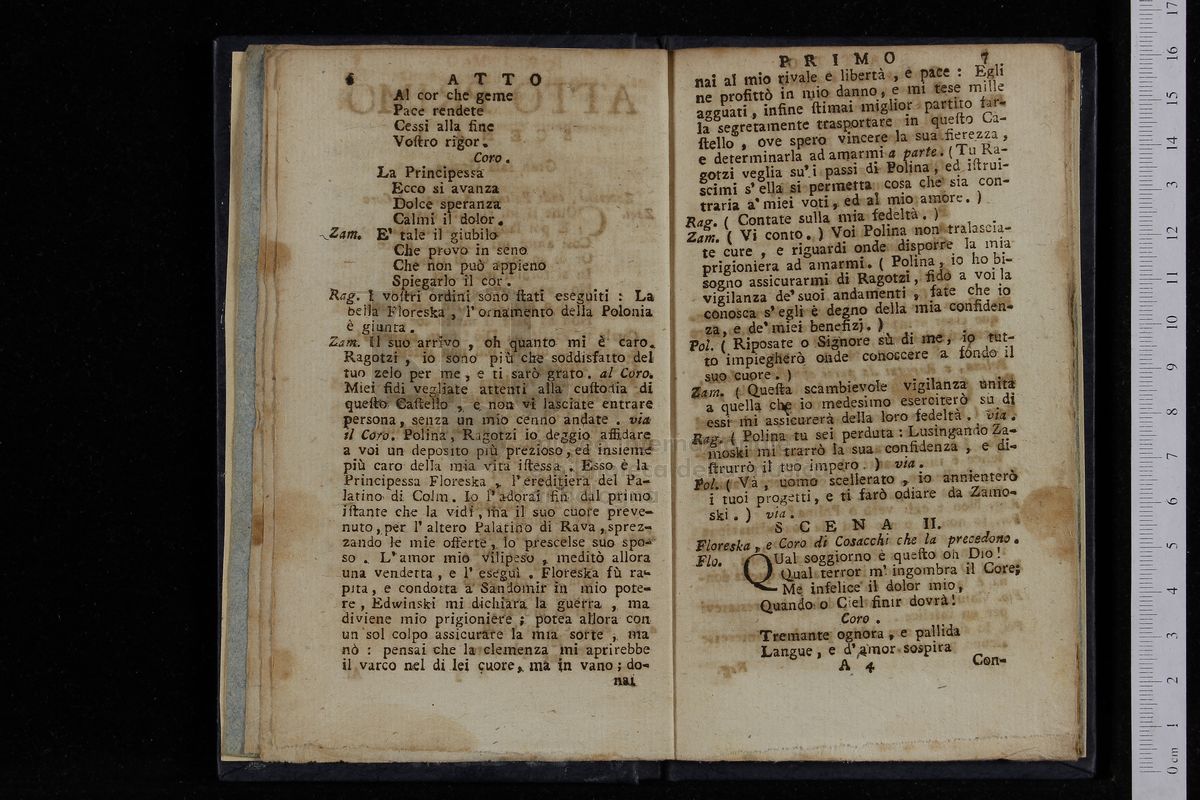 6 ATTO
Al cor che geme
Pace rendete
Cessi alla fine
Voſtro rigor.
Coro.
La Principessa
Ecco si avanza
Dolce speranza
Calmi il dolor.
Zam. E' tale il giubilo
Che provo in seno
Che non può appieno
Spiegarlo il cor.
Rag. I voſtri ordini sono ſtati eseguiti : La
bella Floreska , l' ornamento della Polonia
è giunta .
Zam. Il suo arrivo , oh quanto mi è caro.
Ragotzi , io sono più che soddisfatto del
tuo zelo per me , e ti sarò grato . al Coro.
Miei fidi vegliate attenti alla cuſtodia di
queſto Caſtello , e non vi lasciate entrare
persona , senza un mio cenno andate . via
il Coro. Polina , Ragotzi io deggio affidare
a voi un deposito più prezioso , ed insieme
più caro della mia vita iſtessa . Esso è la
Principessa Floreska , l' ereditiera del Pa-
latino di Colm . Io l' adorai fin dal primo
iſtante che la vidi , ma il suo cuore preve-
nuto , per l' altero Palatino di Rava , sprez-
zando le mie offerte , lo prescelse suo spo-
so . L' amor mio vilipeso , meditò allora
una vendetta , e l' eseguì . Floreska fù ra-
pita , e condotta a Sandomir in mio pote-
re , Edwinski mi dichiara la guerra , ma
diviene mio prigioniere ; potea allora con
un sol colpo assicurare la mia sorte , ma
nò : pensai che la clemenza mi aprirebbe
il varco nel di lei cuore , ma in vano ; do-
nai
PRIMO 7
nai al mio rivale e libertà , e pace : Egli
ne profittò in mio danno , e mi tese mille
agguati , infine ſtimai miglior partito far-
la segretamente trasportare in queſto Ca-
ſtello , ove spero vincere la sua fierezza ,
e determinarla ad amarmi a parte . ( Tu Ra-
gotzi veglia su' i passi di Polina , ed iſtrui-
scimi s' ella si permetta cosa che sia con-
traria a' miei voti , ed al mio amore . )
Rag. ( Contate sulla mia fedeltà . )
Zam. ( Vi conto . ) Voi Polina non tralascia-
te cure , e riguardi onde disporre la mia
prigioniera ad amarmi . ( Polina , io ho bi-
sogno assicurarmi di Ragotzi , fido a voi la
vigilanza de' suoi andamenti , fate che io
conosca s' egli è degno della mia confiden-
za , e de' miei benefizj . )
Pol. ( Riposate o Signore sù di me , io tut-
to impiegherò onde conoscere a fondo il
suo cuore . )
Zam. ( Queſta scambievole vigilanza unita
a quella che io medesimo eserciterò su di
essi mi assicurerà della loro fedeltà . via .
Rag. ( Polina tu sei perduta : Lusingando Za-
moski mi trarrò la sua confidenza , e di-
ſtrurrò il tuo impero . ) via .
Pol. ( Và , uomo scellerato , io annienterò
i tuoi progetti , e ti farò odiare da Zamo-
ski . ) via .
SCENA II.
Floreska , e Coro di Cosacchi che la precedono .
Flo. QUal soggiorno è queſto oh Dio !
Qual terror m' ingombra il Core ;
Me infelice il dolor mio ,
Quando o Ciel finir dovrà !
Coro .
Tremante ognora , e pallida
Langue , e d' amor sospira
A 4 Con-
0 cm 1 2 3 4 5 6 7 8 9 10 11 12 13 14 15 16 17